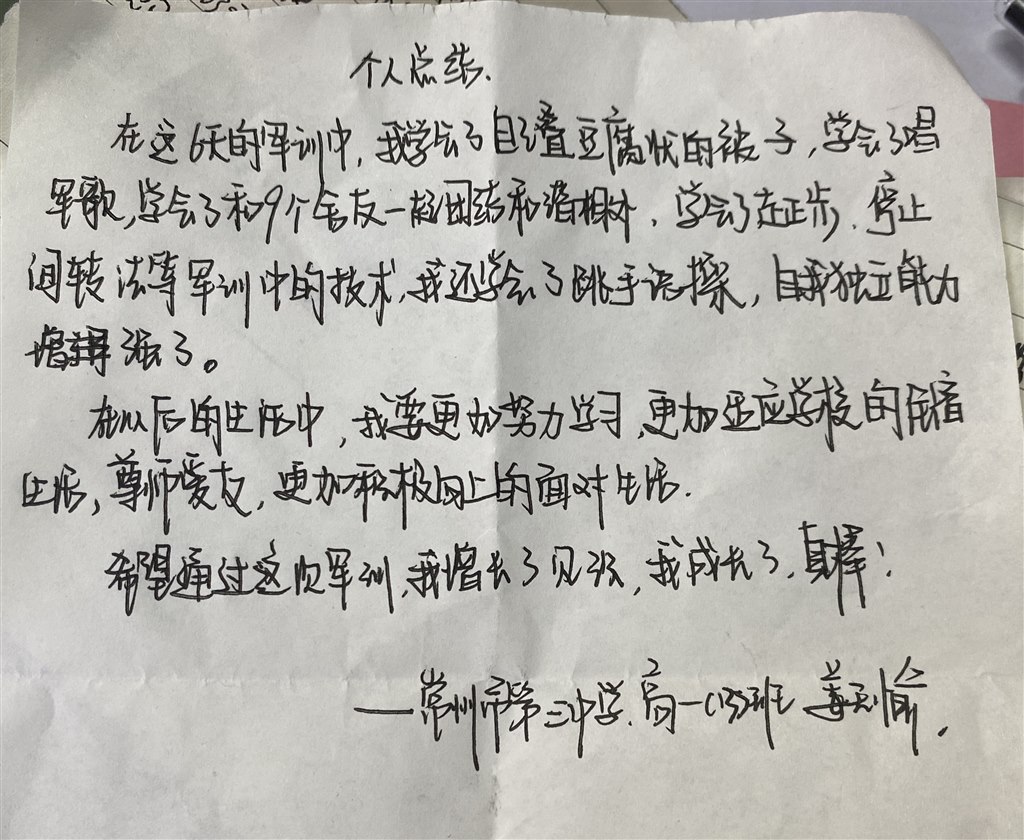 个人总结.
在这6天的军训中,我学会了自己叠豆腐状的被子,学会了唱
军歌,学会了和9个舍友一起团结和谐相处.学会了走正步.停止
间转法等军训中的技术,我还学会了跳手语操,自我独立能力
增强了。
在以后的生活中,我要更加努力学习,更加适应学校的住宿
生活,尊师爱友,更加积极向上的面对生活.
希望通过这次军训,我增长了见识,我成长了,真棒!
——常州市第三中学.高一(13)班 姜